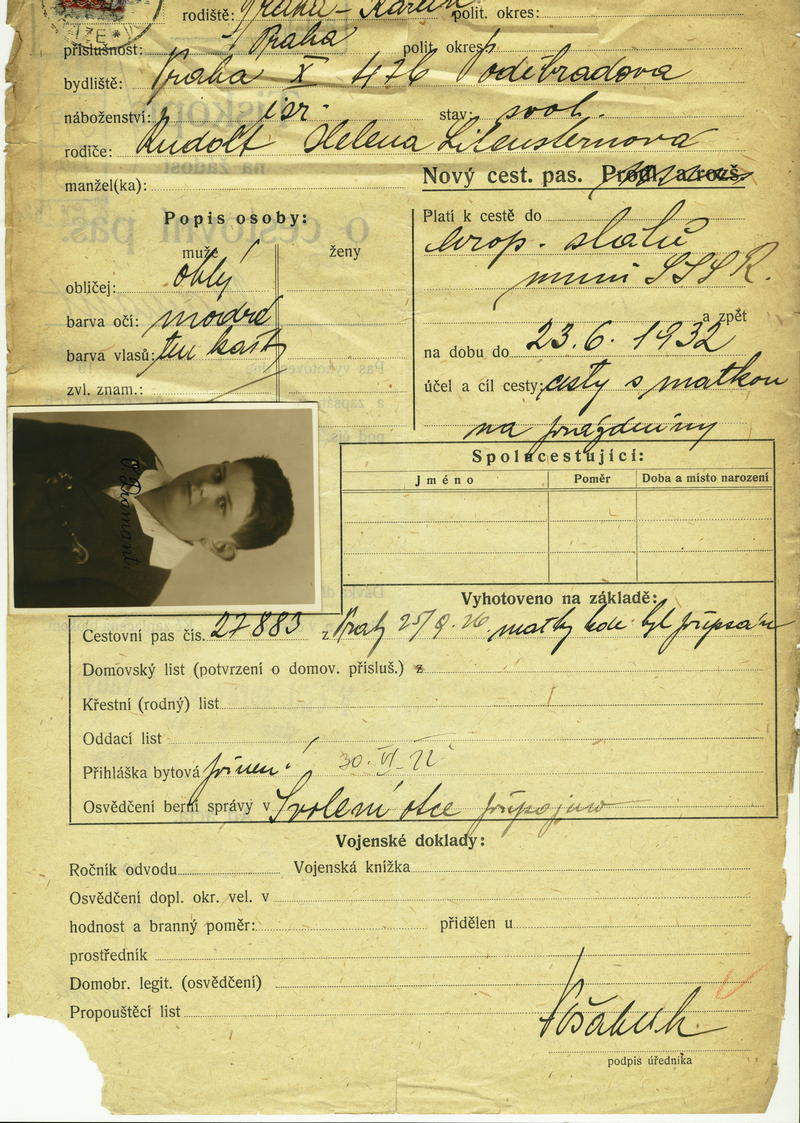 rodiště: Praha - Karlín polit. okres:
příslušnost: Praha polit. okres
bydliště: Praha X 476 Poděbradova
náboženství: isr. stav: svob.
rodiče: Rudolf Helena
manžel(ka): Nový cest. pas. Prodl. a rozš.
Popis osoby:
muže ženy
obličej: oblý
barva očí: modré
barva vlasů: tm kašt
zvl. znam.:
Platí k cestě do
evrop. států
mimo SSSR.
a zpět
na dobu do 23.6. 1932
účel a cíl cesty: cesty s matkou
na prázdniny
V. Diamant.
Spolucestující:
Jméno Poměr Doba a místo narození
Vyhotoveno na základě:
Cestovní pas čís. 27883 z Prahy 25/9. 26. matky kde byl připsán
Domovský list (potvrzení o domov. přísluš.) z
Křestní (rodný) list
Oddací list
Přihláška bytová 30. VI.
Osvědčení berní správy v Svolení otce připojeno
Vojenské doklady:
Ročník odvodu Vojenská knížka
Osvědčení dopl. okr. vel. v
hodnost a branný poměr: přidělen u
prostředník
Domobr. legit. (osvědčení)
Propouštěcí list
podpis úředníka